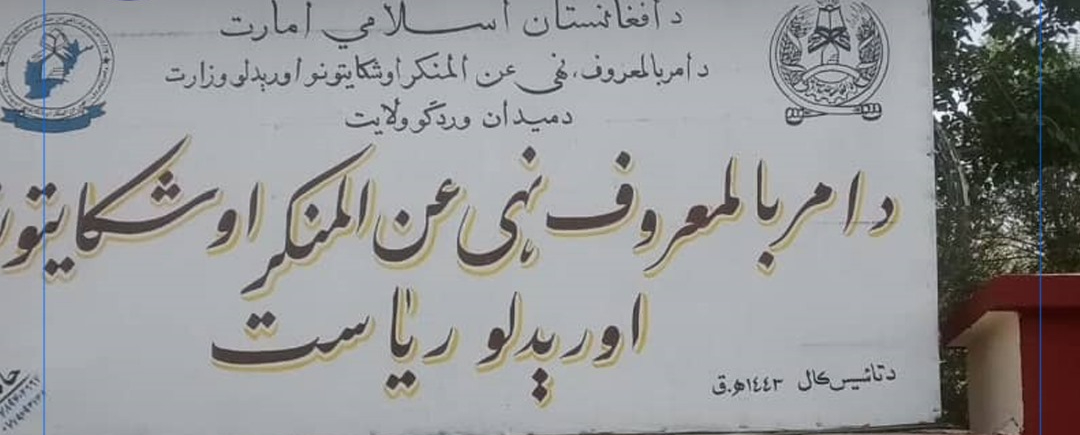 د افغانستان اسلامي امارت
د امر بالمعروف، نهی عن المنکر او شکایتونو اوریدلو وزارت
د میدان وردګو ولایت
د امر بالمعروف نهی عن المنکر او شکایتو
اوریدلو ریاست
د تائسیس کال ۱۴۴۳ه.ق